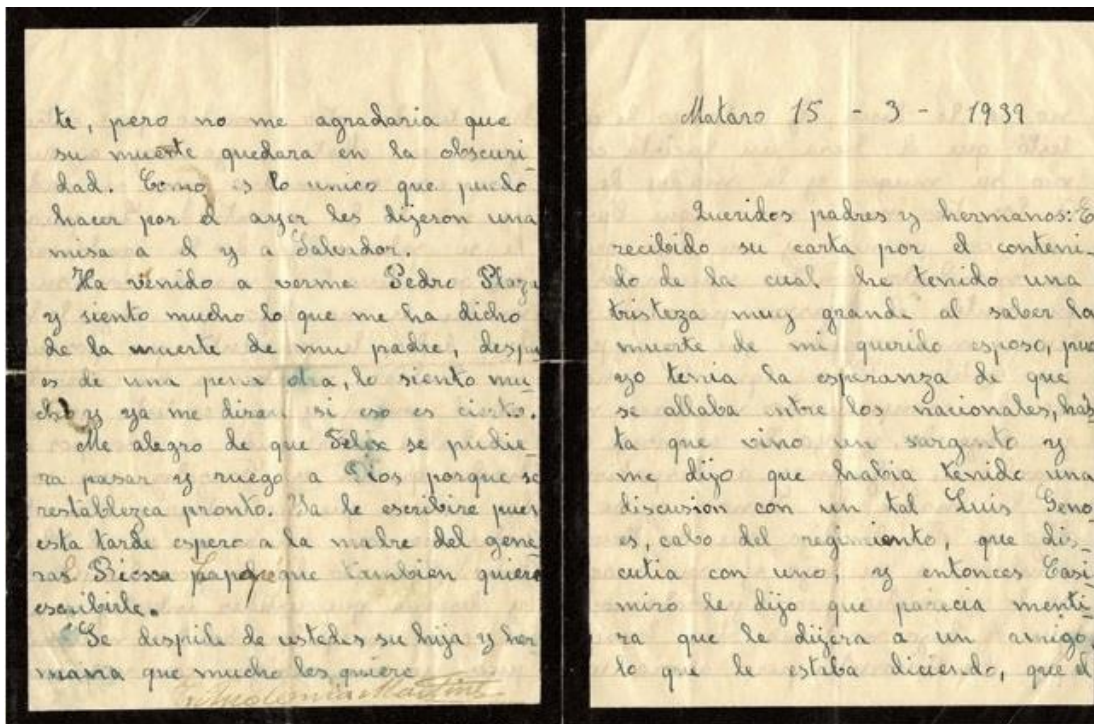 te, pero no me agradaria que
su muerte quedara en la obscuri
dad. Como es lo unico que puedo
hacer por el ayer les dijeron una
misa a el y a Salvador.
Ha venido a verme Pedro Plaza
y siento mucho lo que me ha dicho
de la muerte de mu padre, despu
es de una pena otra, lo siento mu
cho y ya me diran si eso es cierto.
Me alegro de que Felix se pudie-
ra pasar y ruego a Dios porque se
restablezca pronto. Ya le escribire pues
esta tarde espero a la madre del gene
ral que tambien quiere
escribirle.
Se despide de ustedes su hija y her
mana que mucho les quiere
Martine
Mataro 15 - 3 - 1939
Queridos padres y hermanos: E
recibido su carta por el conteni-
do de la cual he tenido una
tristeza muy grande al saber la
muerte de mi querido esposo, pue
yo tenia la esperanza de que
se allaba entre los nacionales, has
ta que vino un sargento y
me dijo que habia tenido una
discusion con un tal Luis Geno
es, cabo del regimiento, que dis-
cutia con uno, y entonces Casi
miro le dijo que parecia menti
ra que le dijera a un amigo
lo que le estaba diciendo, que el